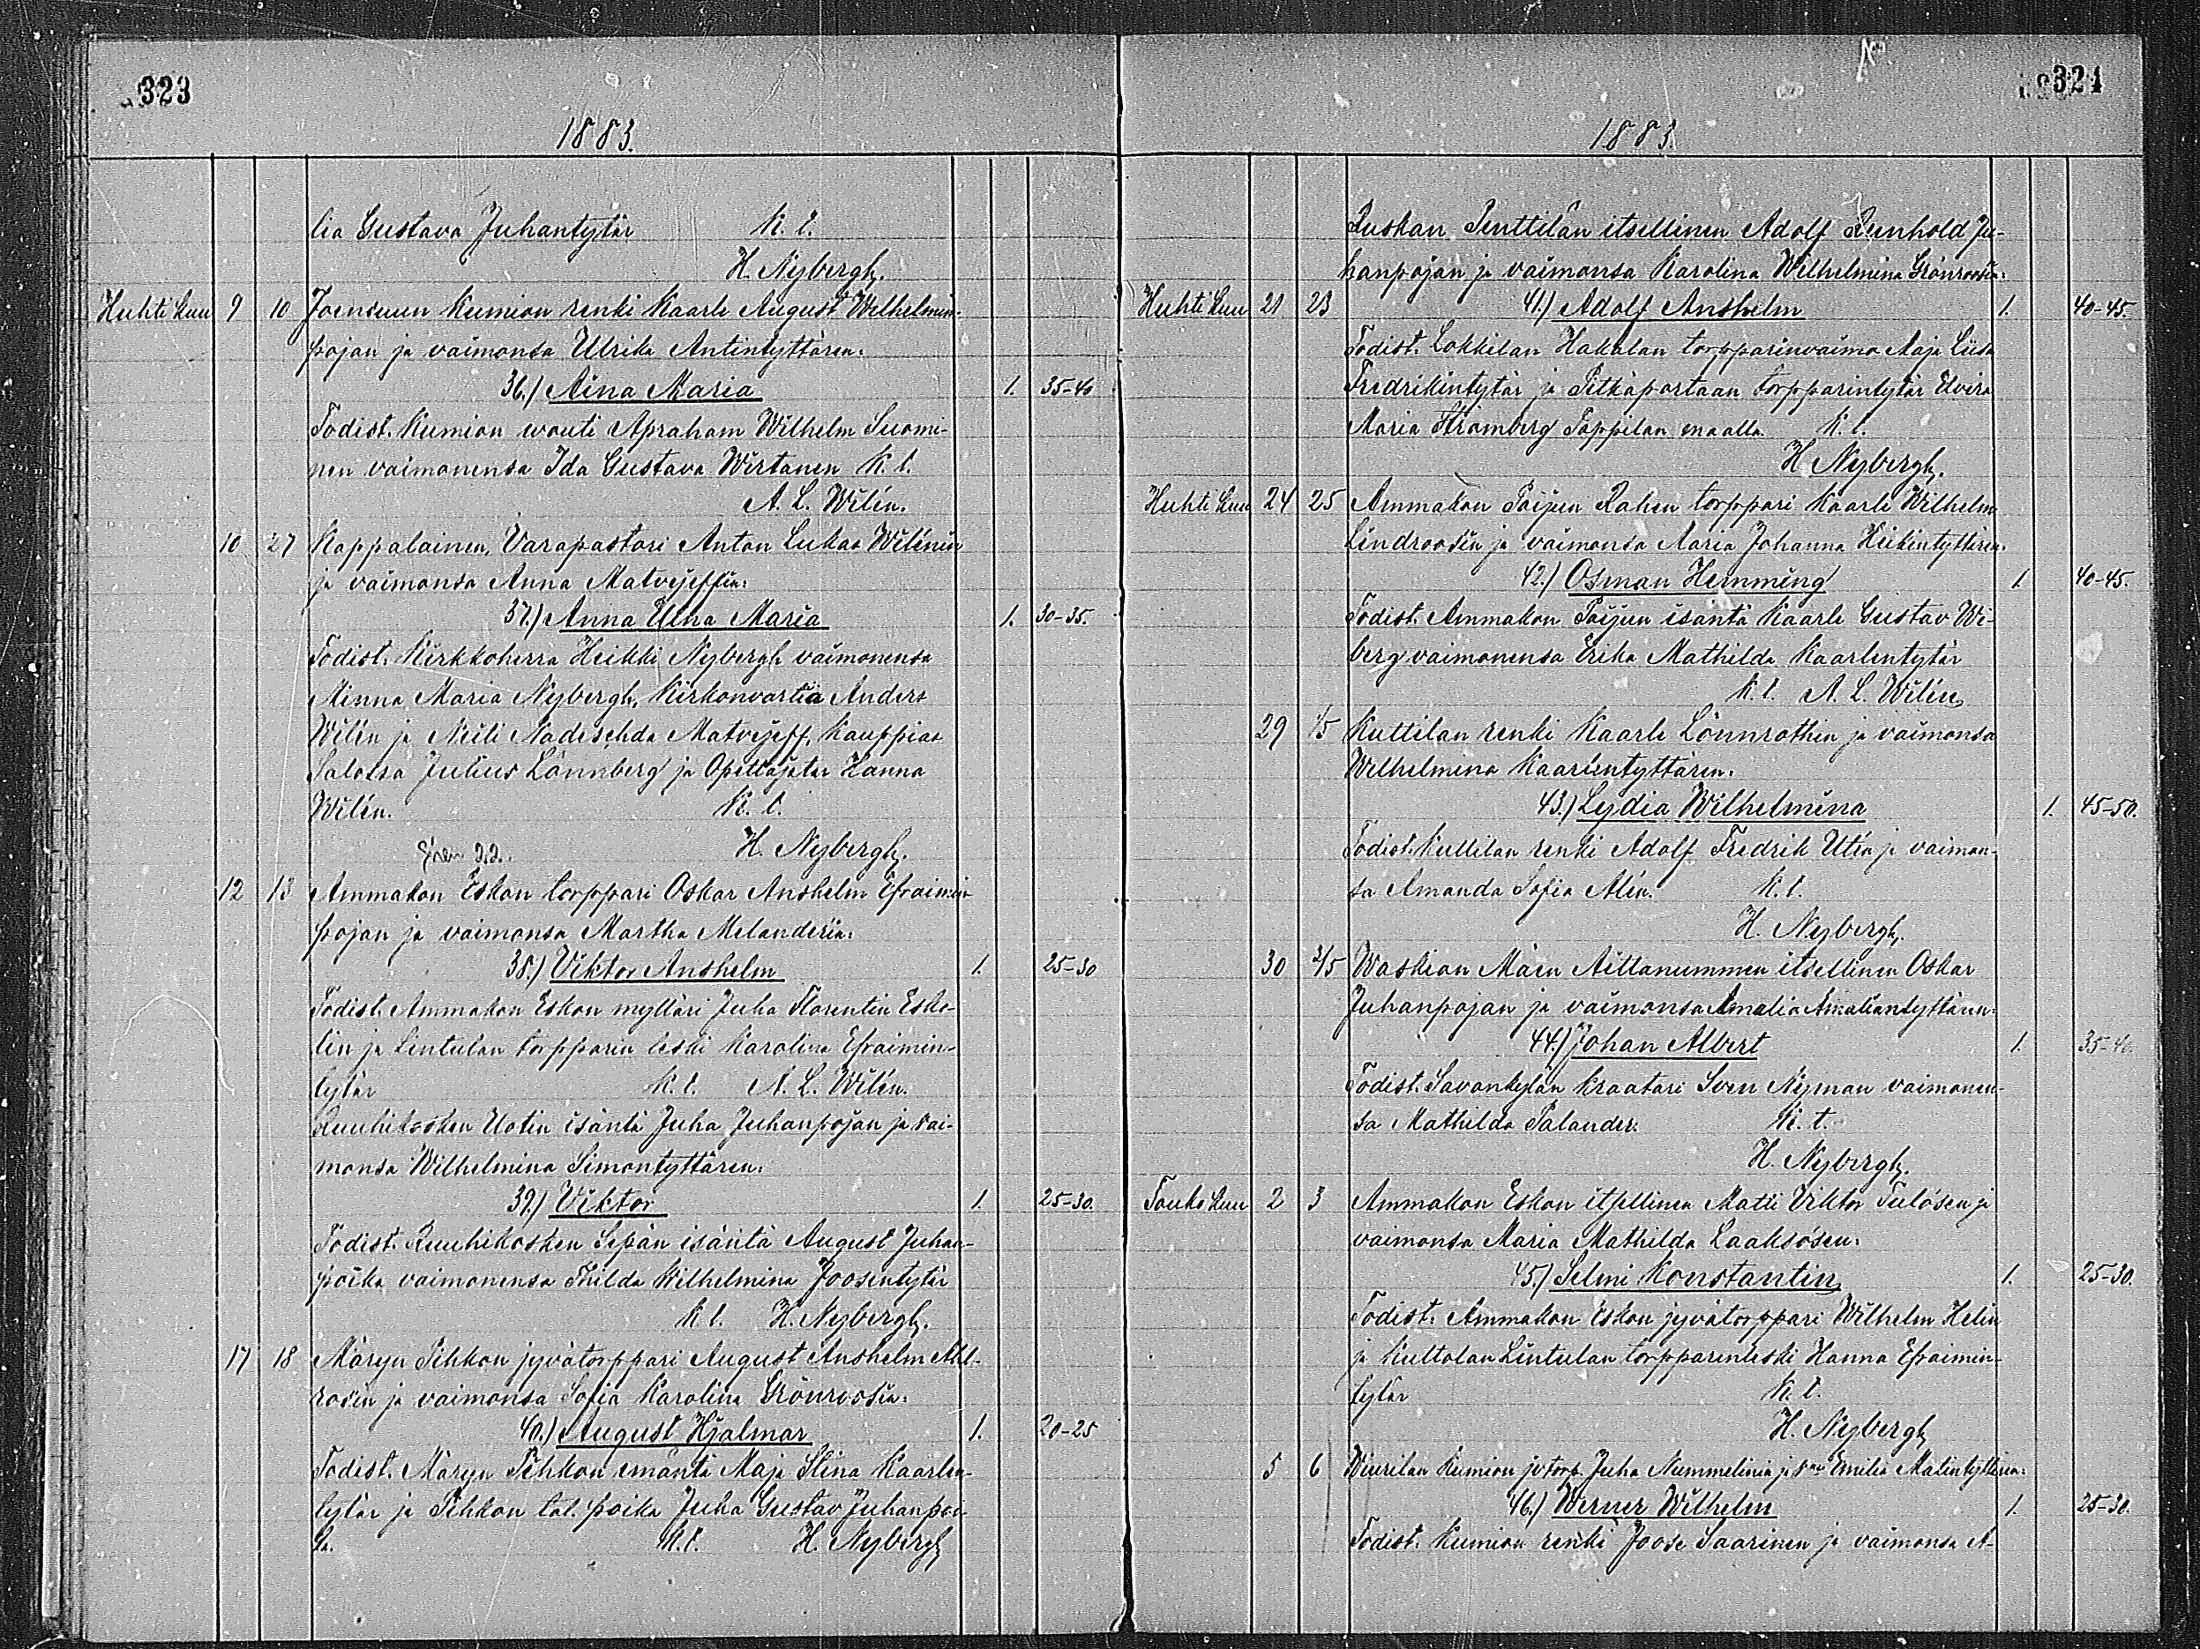 323
1883.
lia Gustava Juhantytär K. t.
H. Nybergh.
Huhti kuu 9 10 Joensuun Kumion renki Kaarle August Wilhelmin-
pojan ja vaimonsa Ulrika Antintyttären:
36.) Aina Maria 1. 35-40
Todist. Kumion wouti Apraham Wilhelm Suomi-
nen vaimonensa Ida Gustava Wirtanen K. t.
A. L. Wilén.
10 27 Kappalainen, Varapastori Anton Lukas Wilénin
ja vaimonsa Anna Matvejeffin:
37.) Anna Ulna Maria 1. 30-35.
Todist. Kirkkoherra Heikki Nybergh vaimonensa
Minna Maria Nybergh, Kirkonvartia Anders
Wilén ja Neiti Nadeschda Matvejeff, Kauppias
Salossa Julius Lönnberg ja Opettajatar Hanna
Wilén. K. t.
H. Nybergh.
12 13 Ammakon Eskon torppari Oskar Anshelm Efraimin
pojan ja vaimonsa Martha Melanderin:
38.) Viktor Anshelm 1. 25-30
Todist. Ammakon Eskon mylläri Juha Florentin Esko-
lin ja Lintulan torpparin leski Karolina Efraimin-
tytär K. t. A. L. Wilén.
Ruuhikosken Uotin isäntä Juha Juhanpojan ja vai-
monsa Wilhelmina Simontyttären:
39.) Viktor 1. 25-30.
Todist. Ruuhikosken Sepän isäntä August Juhan-
poika vaimonensa Thilda Wilhelmina Joosentytär
K t. H. Nybergh.
17 18 Märyn Pihkon jyvätorppari August Anshelm Ahl-
rosin ja vaimonsa Sofia Karolina Grönroosin:
40.) August Hjalmar 1. 20-25
Todist. Märyn Pihkon emäntä Maja Stina Kaarlen-
tytär ja Pihkon tal. poika Juha Gustav Juhanpoi-
ka. K. t. H. Nybergh
324
1883.
Ruskan Penttilän itsellinen Adolf Renhold Ju-
hanpojan ja vaimonsa Karolina Wilhelmina Grönroosin:
Huhti kuu 21 23 41.) Adolf Anshelm 1. 40-45.
Todist. Lokkilan Hakalan torpparinvaimo Maja Liisa
Fredrikintytär ja Pitkäportaan torpparintytär Elvira
Maria Strömberg Pappilan maalla. K. t.
H Nybergh.
Huhti kuu 24 25 Ammakon Päijun Rahen torppari Kaarle Wilhelm
Lindroosin ja vaimonsa Maria Johanna Heikintyttären:
42.) Osman Hemming 1. 40-45.
Todist. Ammakon Päijun isäntä Kaarle Gustav Wi-
berg vaimonensa Erika Mathilda Kaarlentytär
K. t. A. L. Wilén
29 1/5 Kuttilan renki Kaarle Lönnrothin ja vaimonsa
Wilhelmina Kaarlentyttären:
43.) Lydia Wilhelmina 1. 45-50.
Todist. Kuttilan renki Adolf Fredrik Utin ja vaimon-
sa Amanda Sofia Alin. K. t.
H. Nybergh.
30 2/5 Waskion Mäen Aittanummen itsellinen Oskar
Juhanpojan ja vaimonsa Amalia Amaliantyttären:
44.) Johan Albert 1. 35-40.
Todist. Savonkylän kraatari Sven Nyman vaimonen-
sa Mathilda Palander. K. t.
H. Nybergh.
Touko kuu 2 3 Ammakon Eskon itsellinen Matti Viktor Tulosen ja
vaimonsa Maria Mathilda Laaksosen:
45.) Selmi Konstantin 1. 25-30.
Todist. Ammakon Eskon jyvätorppari Wilhelm Helin
ja Kuttolan Lintulan torpparinleski Hanna Efraimin-
tytär K. t.
H. Nybergh
5 6 Wiurilan Kumion jvtorp. Juha Nummelinin ja vmo Emilia Matintyttären:
46.) Werner Wilhelm 1. 25-30.
Todist. Kumion renki Joose Saarinen ja vaimonsa A-